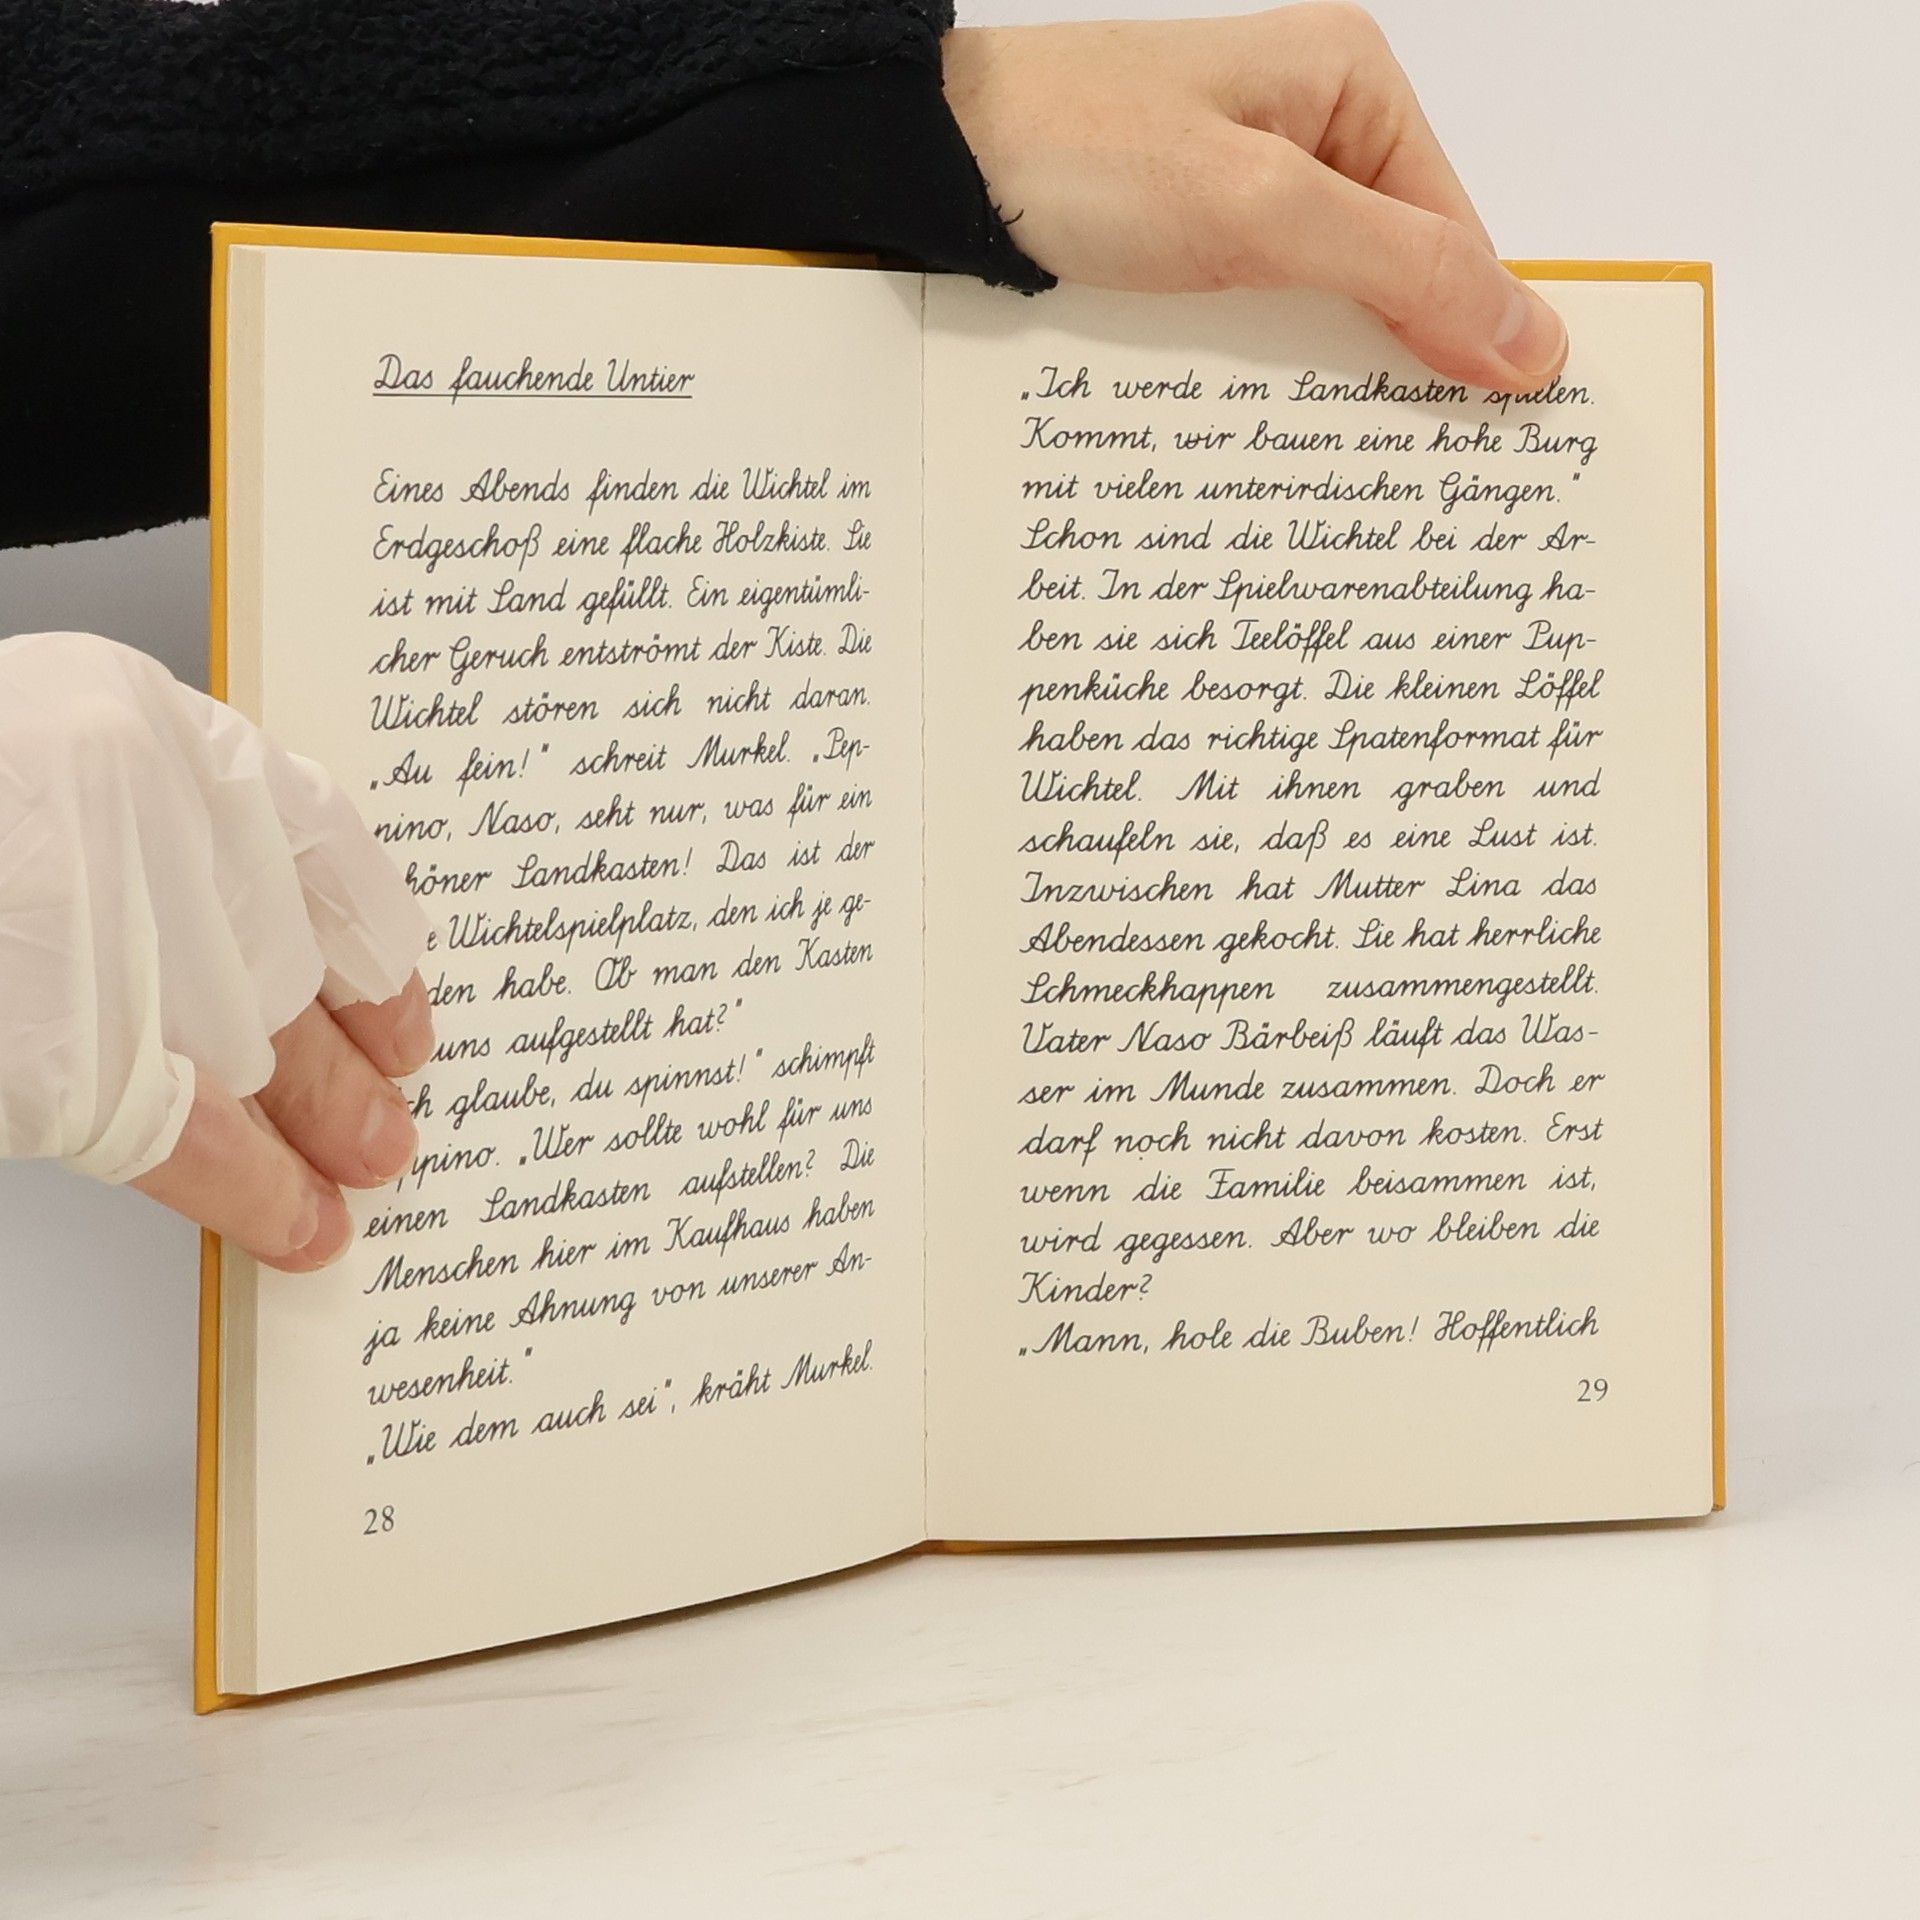 Das fauchende Untier
Eines Abends finden die Wichtel im
Erdgeschoß eine flache Holzkiste. Sie
ist mit Sand gefüllt. Ein eigentümli-
cher Geruch entströmt der Kiste. Die
Wichtel stören sich nicht daran.
„Au fein!" schreit Murkel. „Pep-
pino, Naso, seht nur, was für ein
höner Sandkasten! Das ist der
e Wichtelspielplatz, den ich je ge-
den habe. Ob man den Kasten
uns aufgestellt hat?"
ch glaube, du spinnst!" schimpft
ppino. „Wer sollte wohl für uns
einen Sandkasten aufstellen? Die
Menschen hier im Kaufhaus haben
ja keine Ahnung von unserer An-
wesenheit."
„Wie dem auch sei", kräht Murkel.
28
„Ich werde im Sandkasten spielen.
Kommt, wir bauen eine hohe Burg
mit vielen unterirdischen Gängen."
Schon sind die Wichtel bei der Ar-
beit. In der Spielwarenabteilung ha-
ben sie sich Teelöffel aus einer Pup-
penküche besorgt. Die kleinen Löffel
haben das richtige Spatenformat für
Wichtel. Mit ihnen graben und
schaufeln sie, daß es eine Lust ist.
Inzwischen hat Mutter Lina das
Abendessen gekocht. Sie hat herrliche
Schmeckhappen zusammengestellt.
Vater Naso Bärbeiß läuft das Was-
ser im Munde zusammen. Doch er
darf noch nicht davon kosten. Erst
wenn die Familie beisammen ist,
wird gegessen. Aber wo bleiben die
Kinder?
„Mann, hole die Buben! Hoffentlich
29